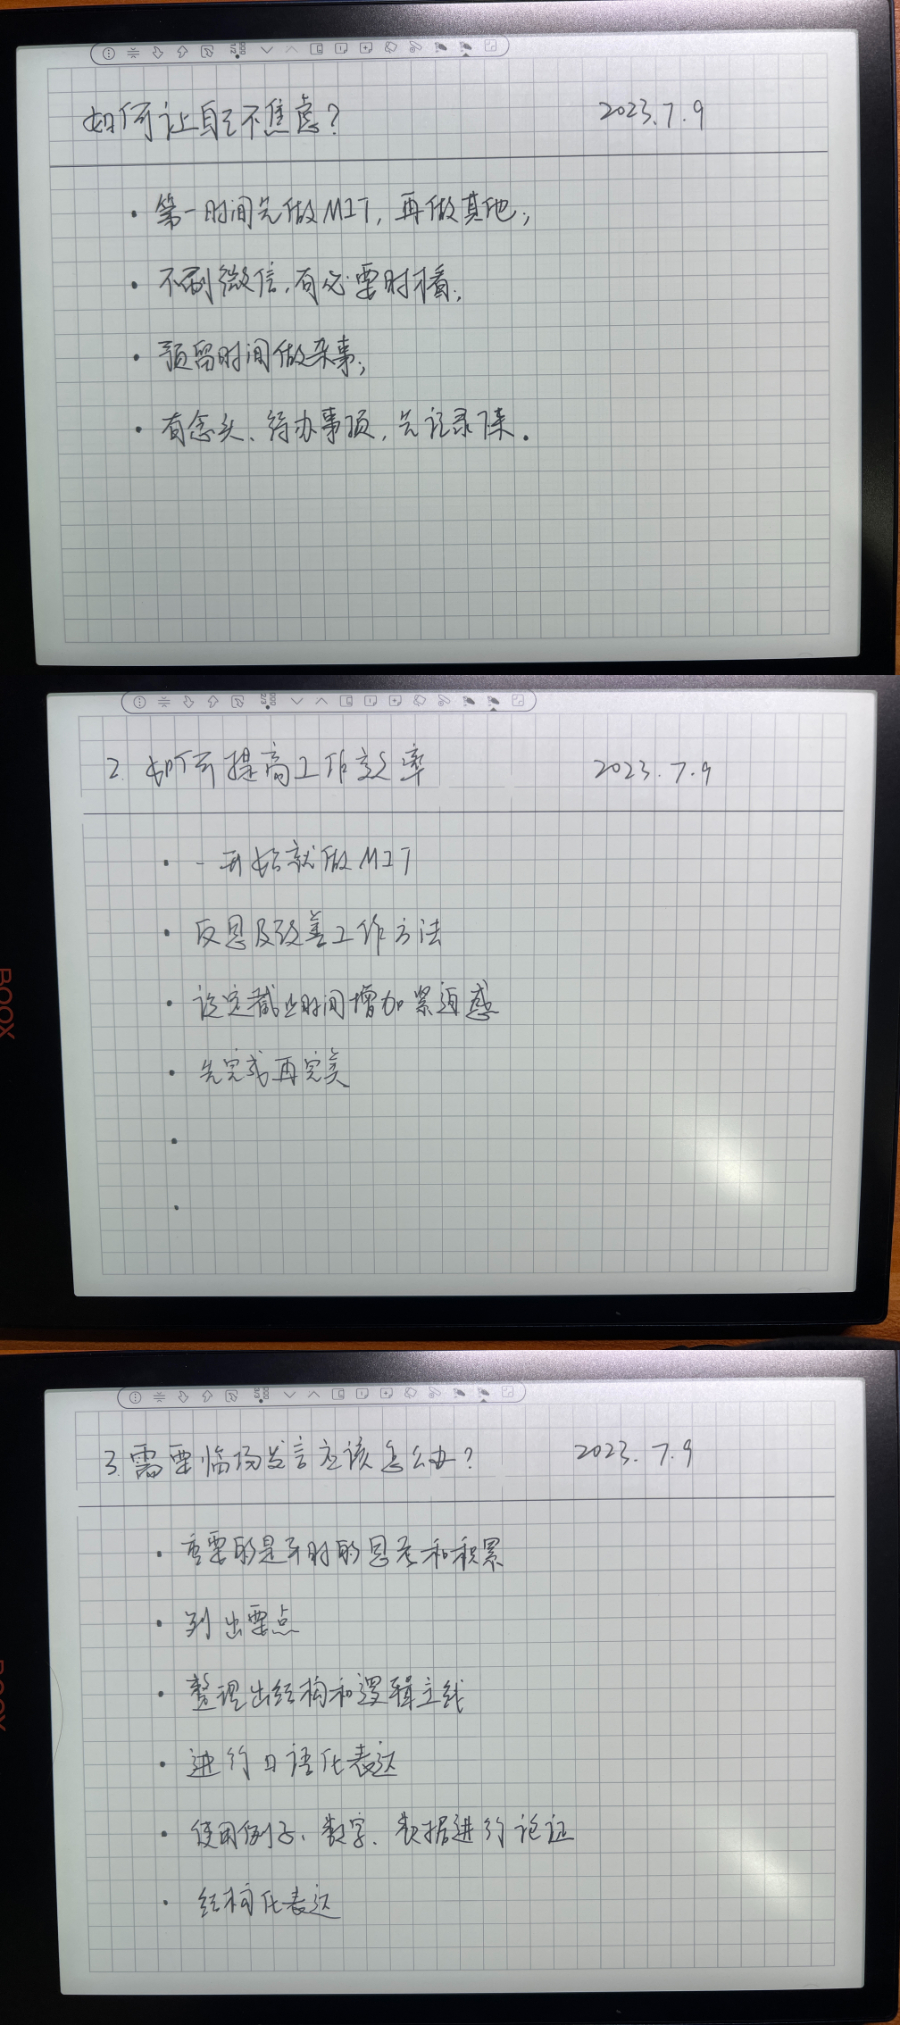 如何让自己不焦虑？ 2023.7.9
· 第一时间先做MIT，再做其他；
· 不刷微信，有必要时才看；
· 预留时间做杂事；
· 有念头、待办事项，先记录下来。
2. 如何提高工作效率 2023.7.9
· 一开始就做MIT
· 反思及改善工作方法
· 设定截止时间增加紧迫感
· 先完成再完美
·
·
BOOX
3. 需要临场发言应该怎么办？ 2023.7.9
· 重要的是平时的思考和积累
· 列出要点
· 整理出结构和逻辑主线
· 进行口语化表达
· 使用例子、数字、数据进行论证
· 结构化表达
BOOX